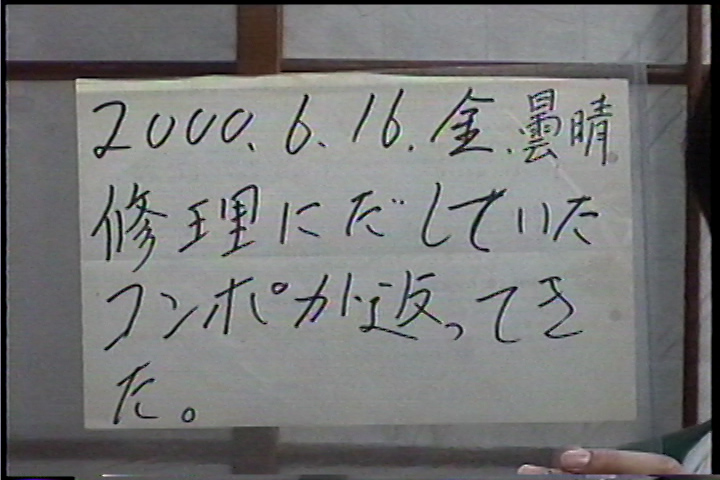 2000.6.16.金.曇晴
修理にだしていた
コンポが返ってき
た。